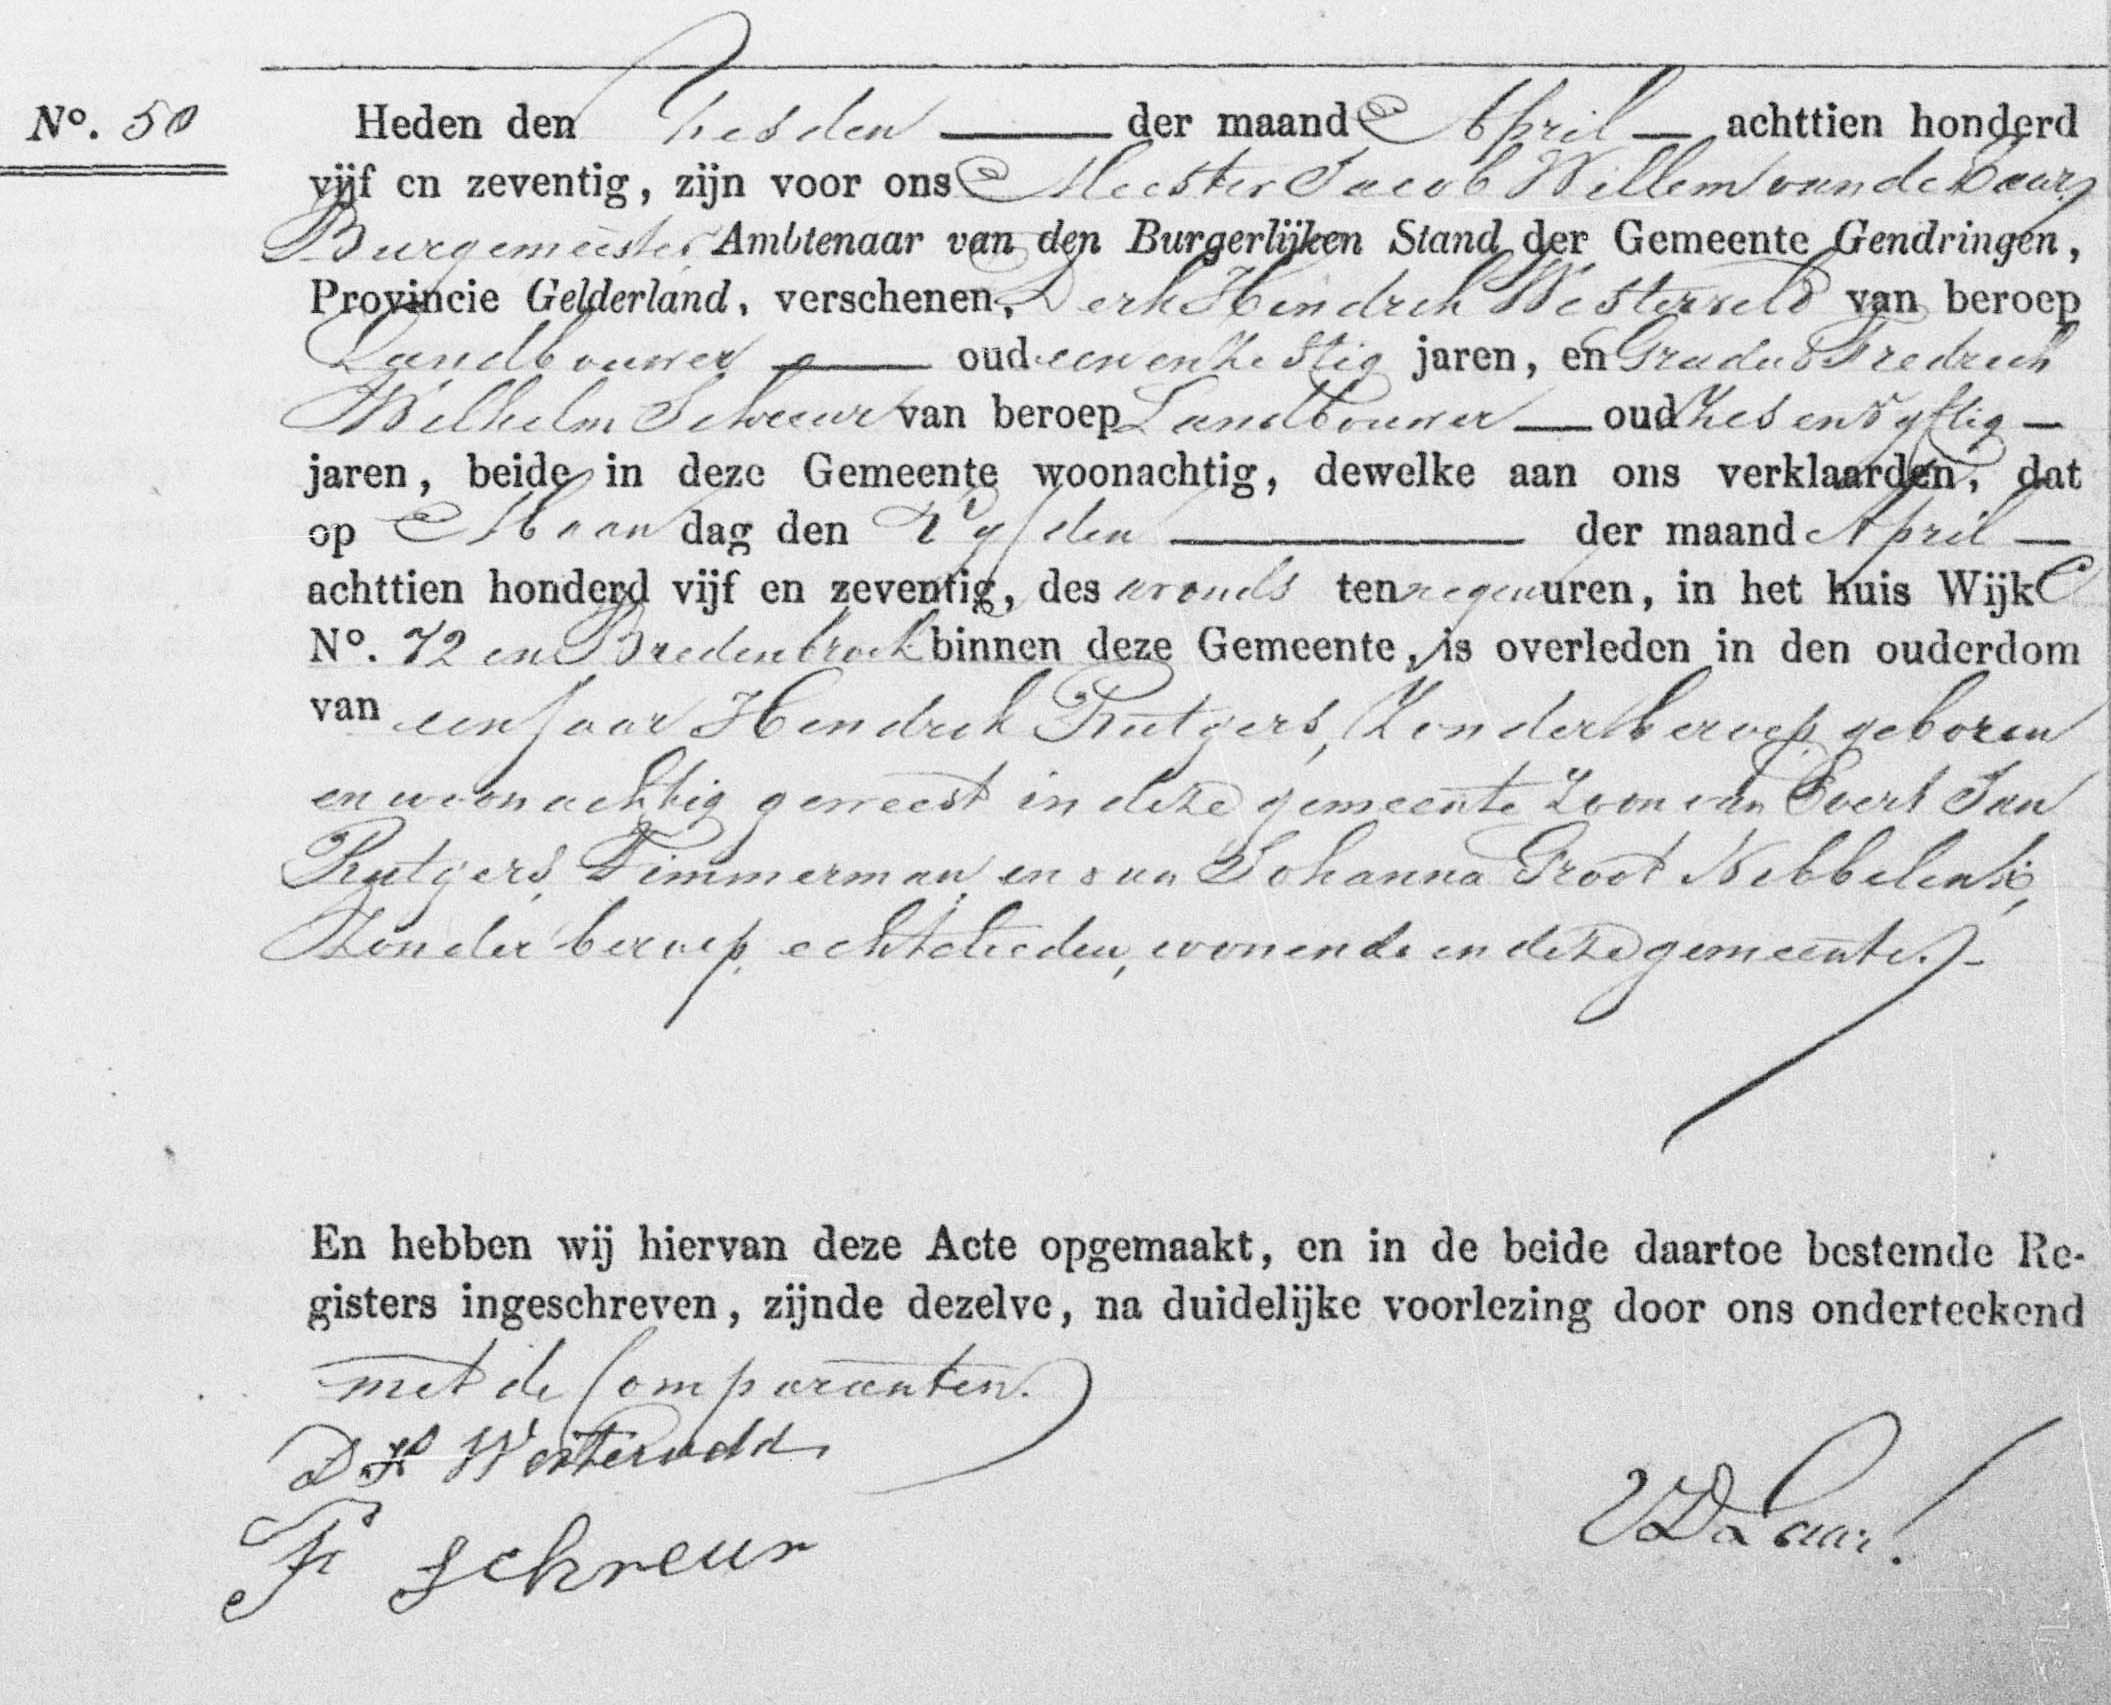 Nº. 50
Heden den Zesden der maand April achttien honderd
vijf en zeventig, zijn voor ons Meester Jacob Willem van de Laar,
Burgemeester, Ambtenaar van den Burgerlijken Stand der Gemeente Gendringen,
Provincie Gelderland, verschenen, Derk Hendrik Westerveld van beroep
Landbouwer oud een en zestig jaren, en Gradus Fredrick
Wilhelm Schreur van beroep Landbouwer oud zes en vyftig
jaren, beide in deze Gemeente woonachtig, dewelke aan ons verklaarden, dat
op Maandag den vyfden der maand April
achttien honderd vijf en zeventig, des avonds ten negen uren, in het huis Wijk C
Nº. 72 in Bredenbroek binnen deze Gemeente, is overleden in den ouderdom
van een jaar Hendrik Rutgers, zonder beroep, geboren
en woonachtig geweest in deze gemeente zoon van Evert Jan
Rutgers, Timmerman, en van Johanna Groot Nibbelink,
zonder beroep, echtelieden, wonende in deze gemeente.
En hebben wij hiervan deze Acte opgemaakt, en in de beide daartoe bestemde Re-
gisters ingeschreven, zijnde dezelve, na duidelijke voorlezing door ons onderteekend
met de Comparanten.
D H Westerveld
F Schreur
VD Laar